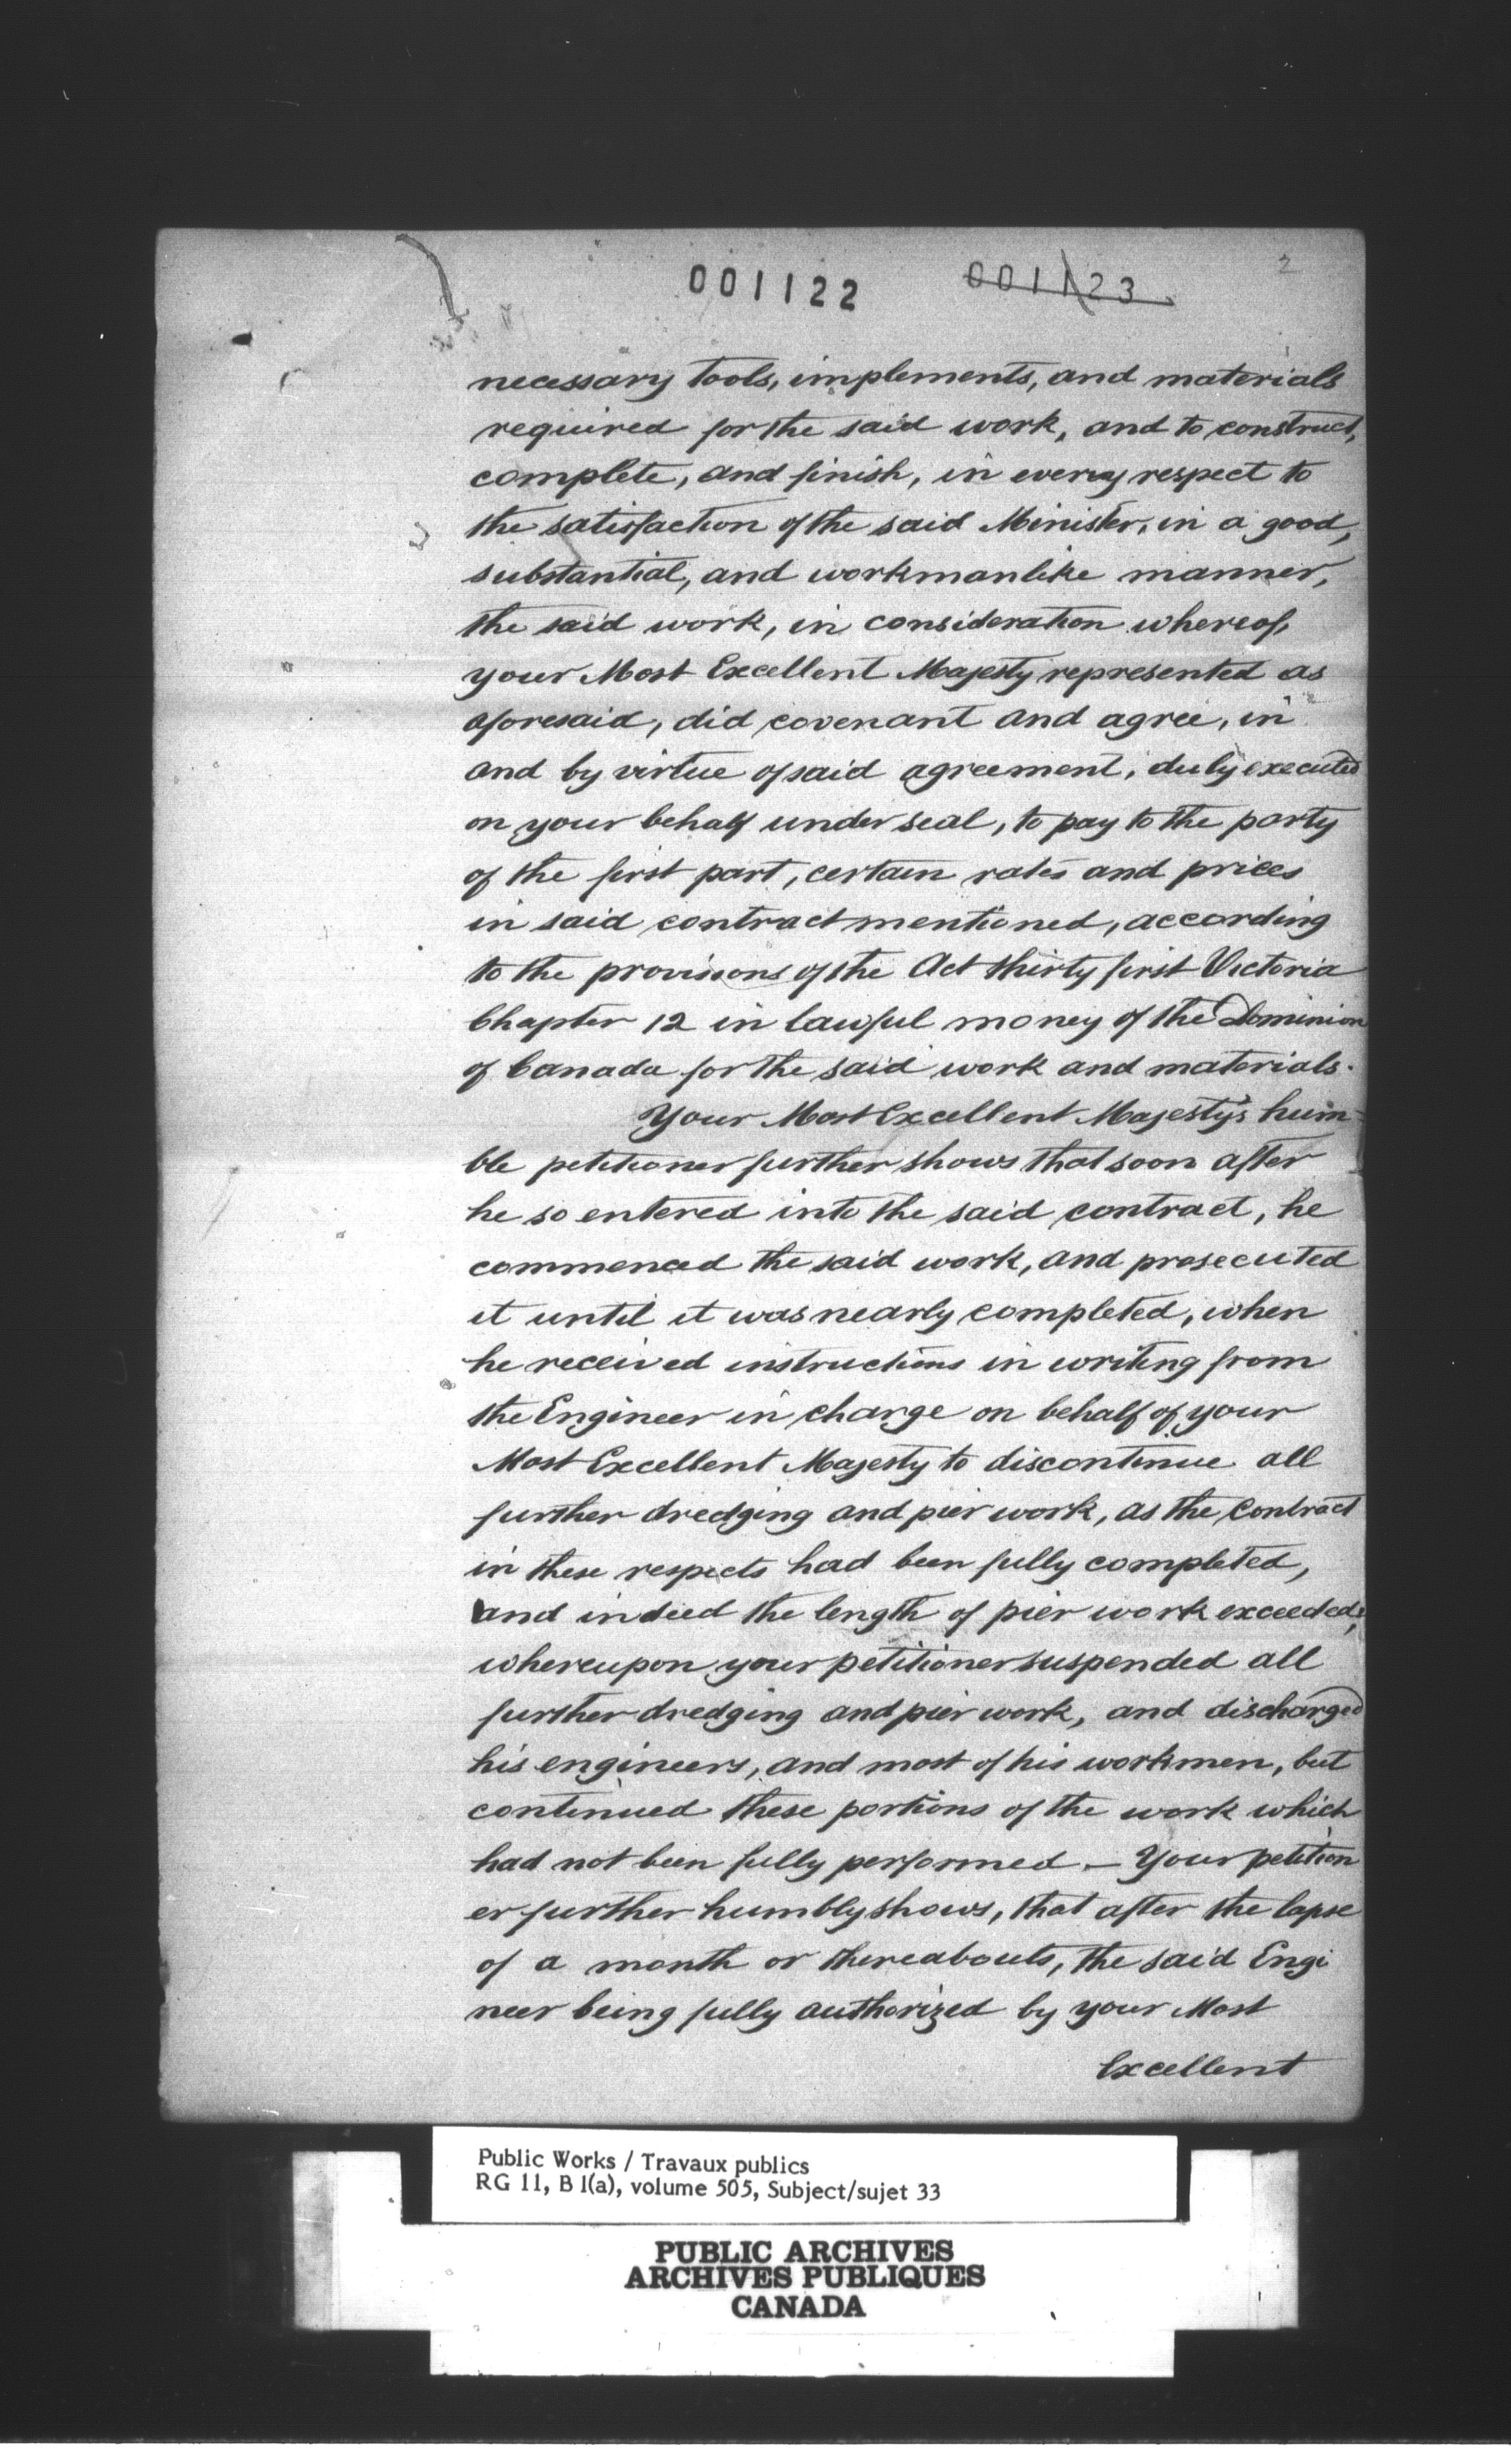 001122 001123 2
necessary tools, implements, and materials
required for the said work, and to construct,
complete, and finish, in every respect to
the satisfaction of the said Minister, in a good,
substantial, and workmanlike manner,
the said work, in consideration whereof,
your Most Excellent Majesty represented as
aforesaid, did covenant and agree, in
and by virtue of said agreement, duly executed
on your behalf under seal, to pay to the party
of the first part, certain rates and prices
in said contract mentioned, according
to the provisions of the Act thirty first Victoria
Chapter 12 in lawful money of the Dominion
of Canada for the said work and materials.
Your Most Excellent Majesty's hum-
ble petitioner further shows that soon after
he so entered into the said contract, he
commenced the said work, and prosecuted
it until it was nearly completed, when
he received instructions in writing from
the Engineer in charge on behalf of your
Most Excellent Majesty to discontinue all
further dredging and pier work, as the contract
in these respects had been fully completed,
and indeed the length of pier work exceeded,
whereupon your petitioner suspended all
further dredging and pier work, and discharged
his engineers, and most of his workmen, but
continued these portions of the work which
had not been fully performed. — Your petition
er further humbly shows, that after the lapse
of a month or thereabouts, the said Engi
neer being fully authorized by your Most
Excellent
Public Works / Travaux publics
RG 11, B 1(a), volume 505, Subject/sujet 33
PUBLIC ARCHIVES
ARCHIVES PUBLIQUES
CANADA